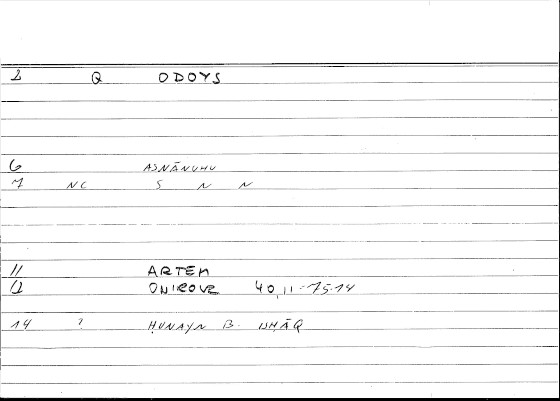 2 Q ODOYS
6 ASNĀNUHU
7 NC S N N
11 ARTEM
12 ONIROCR 40,11-75.14
14 ? ḤUNAYN B. ISḤĀQ